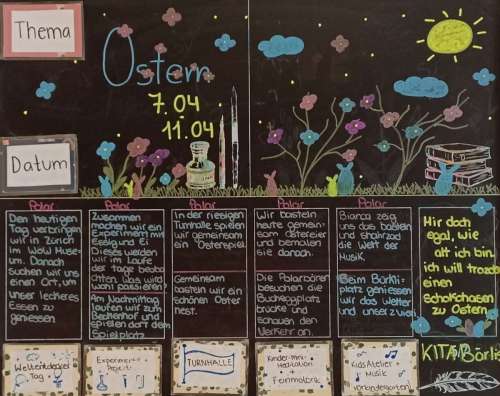 Thema
Ostern
7.04
11.04
Datum
Polar
Den heutigen
Tag verbringen
wir in Zürich
im WOW Muse-
um. Danach
suchen wir uns
einen Ort, um
unser leckeres
Essen zu
geniessen.
Polar
Zusammen
machen wir ein
Experiment mit
Essig und Ei.
Dieses werden
wir im Laufe
der Tage beoba
chten. Was wird
wohl passieren?
Am Nachmittag
laufen wir zum
Beckenhof und
spielen dort dem
Spielplatz
Polar
In der riesigen
Turnhalle spielen
wir gemeinsam
ein Osterspiel.
Gemeinsam
basteln wir ein
schönen Oster
nest.
Polar
Wir basteln
heute gemein-
sam Ostereier
und bemalen
sie danach.
Die Polarbären
besuchen die
Bucheggplatz
brücke und
schauen den
Verkehr an.
Polar
Bianca zeig
uns das basteln
und
die Welt der
Musik.
Beim Börkli-
platz geniessen
wir das Wetter
und unser Zvieri
Mir doch
egal, wie
alt ich bin,
ich will trozdem
einen
Schokihasen
zu Ostern
Weltentdecker
Tag
Experimentier
Arbeit
TURNHALLE
Kinder-Mini-
Meditation
+
Feinmotorik
KidsAtelier
Musik
(Vorkindergarten)
KITA Börkli